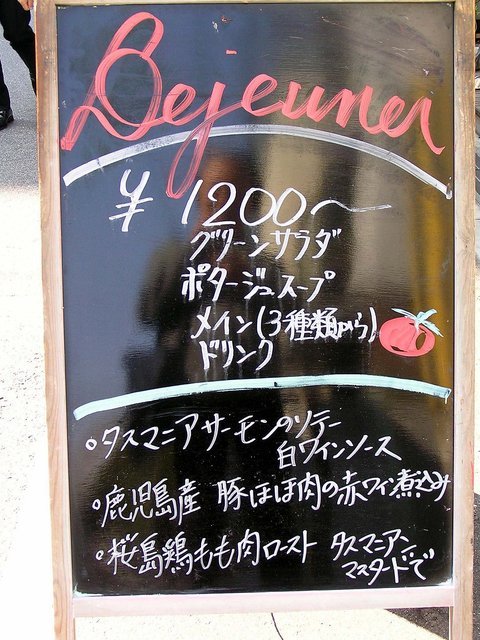 Dejeuner
¥1200〜
グリーンサラダ
ポタージュスープ
メイン(3種類から)
ドリンク
○タスマニアサーモンのソテー
白ワインソース
○鹿児島産 豚ほほ肉の赤ワイン煮込み
○桜島鶏もも肉ロースト タスマニアン
マスタードで